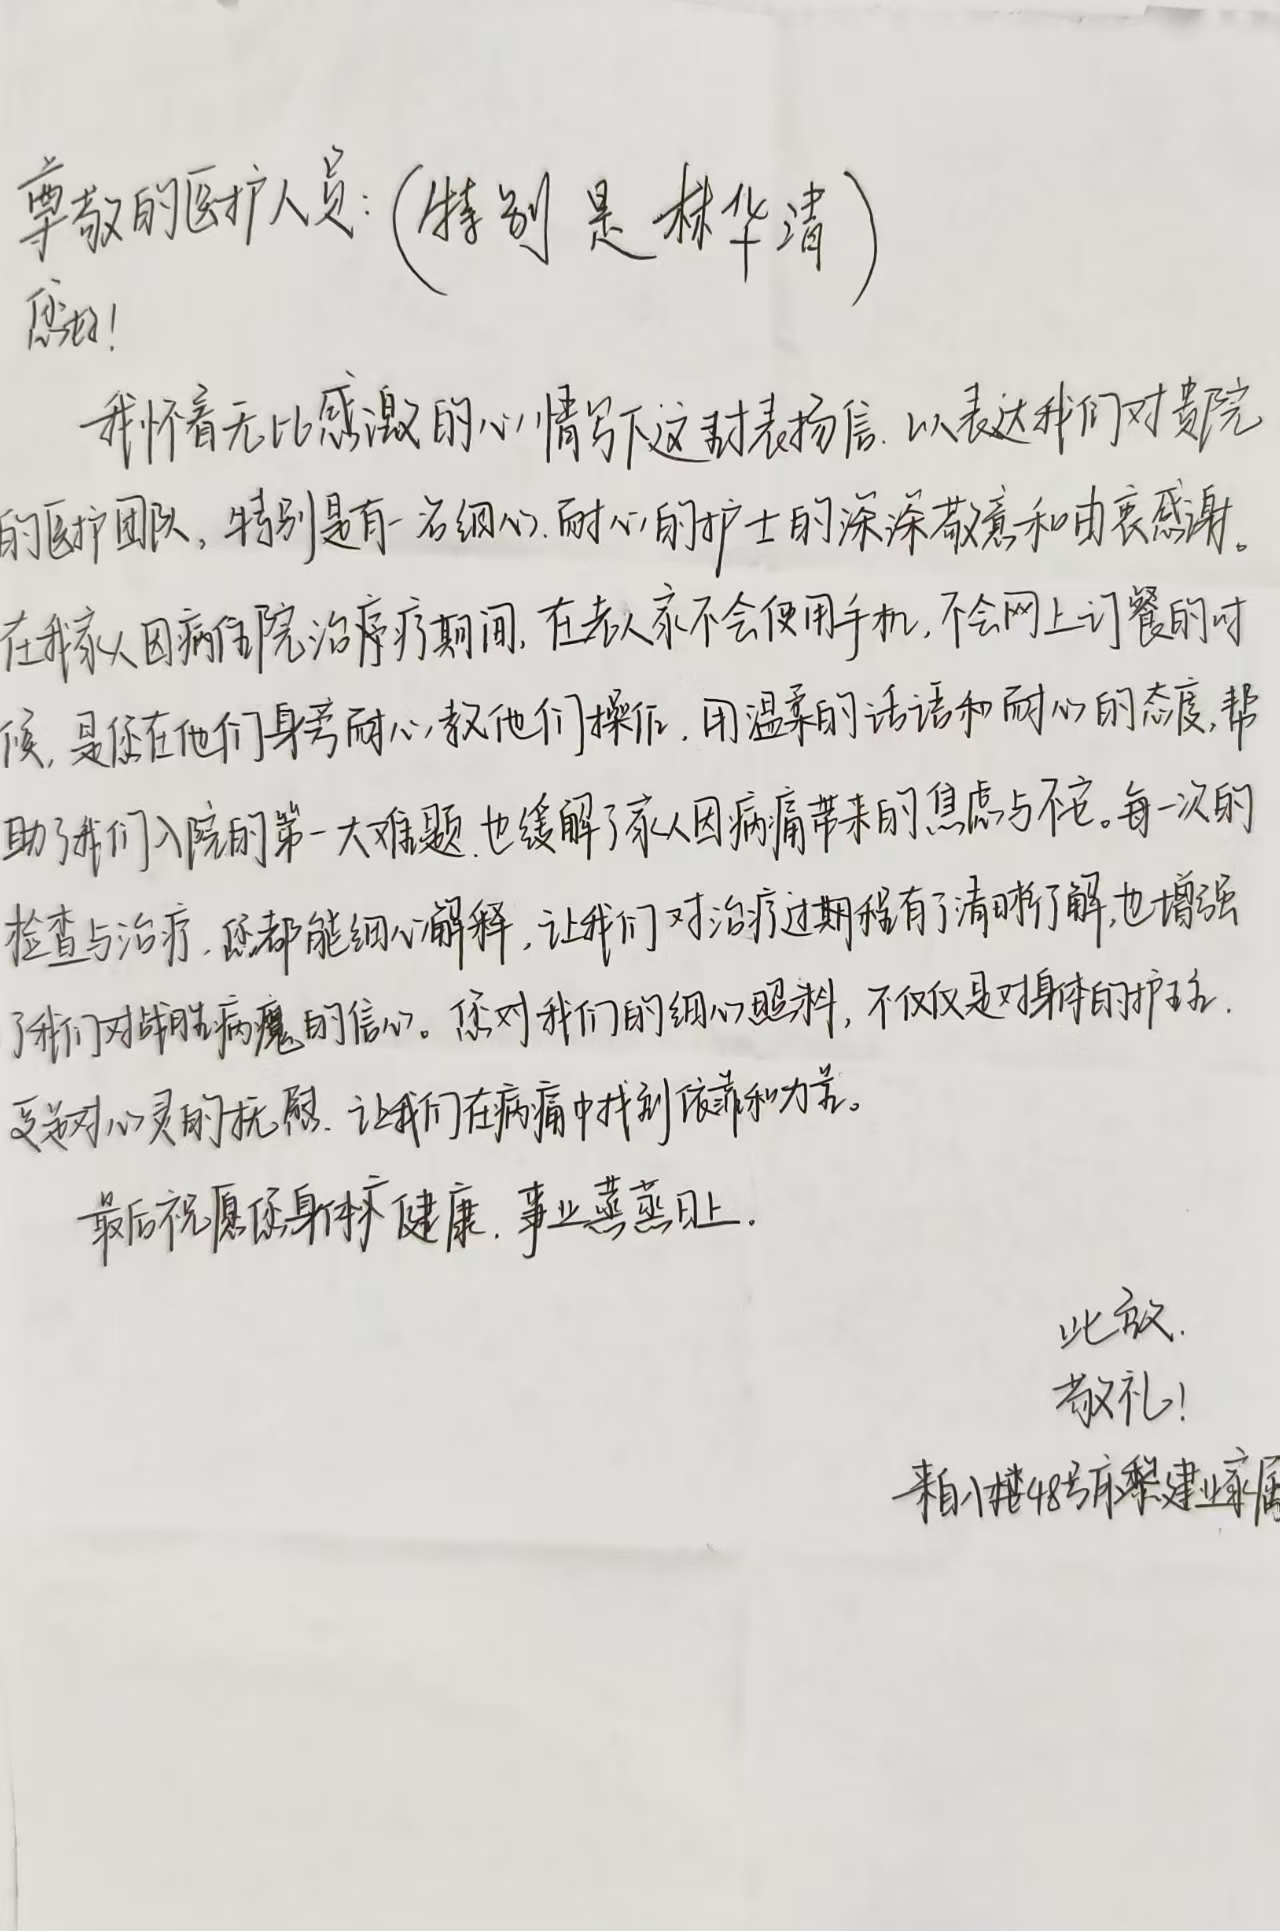 尊敬的医护人员:(特别是林华清)
您好!
我怀着无比感激的心情写下这封表扬信.以表达我们对贵院
的医护团队,特别是有一名细心.耐心的护士的深深敬意和由衷感谢。
在我家人因病住院治疗期间,在老人家不会使用手机,不会网上订餐的时
候,是您在他们身旁耐心教他们操作.用温柔的话语和耐心的态度,帮
助了我们入院的第一大难题.也缓解了家人因病痛带来的焦虑与不安。每一次的
检查与治疗.您都能细心解释,让我们对治疗过程有了清晰了解,也增强
了我们对战胜病魔的信心。您对我们的细心照料,不仅仅是对身体的护理.
更是对心灵的抚慰.让我们在病痛中找到依靠和力量。
最后祝愿您身体健康.事业蒸蒸日上.
此致.
敬礼!
来自八楼48号床黎建业家属